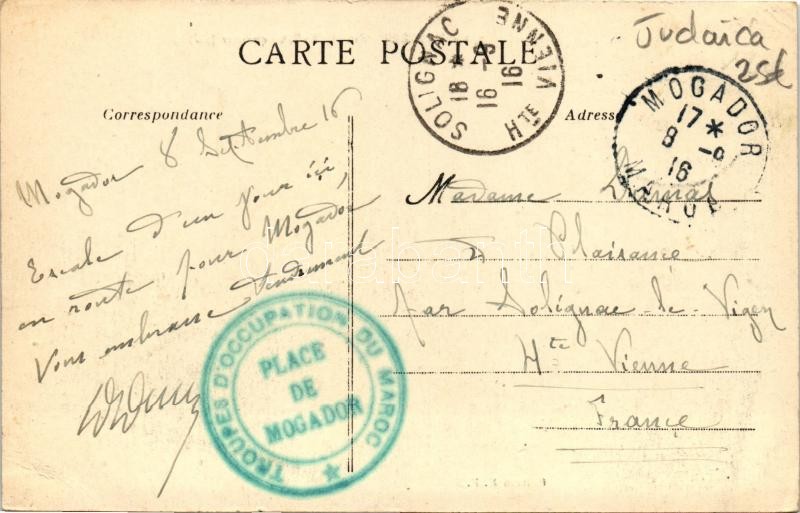 CARTE POSTALE
Correspondance
Adresse
Judaïca
SOLIGNAC
Hte VIENNE
18 *
16 -9
16
MOGADOR
17 *
8 -9
16
MAROC
Mogador 8 Septembre 16
Escale d'un jour ici,
en route pour Mogador
Vous embrasse tendrement
Madame Dumas
à Plaisance
par Solignac-le-Vigen
Hte Vienne
France
TROUPES D'OCCUPATION DU MAROC
PLACE
DE
MOGADOR